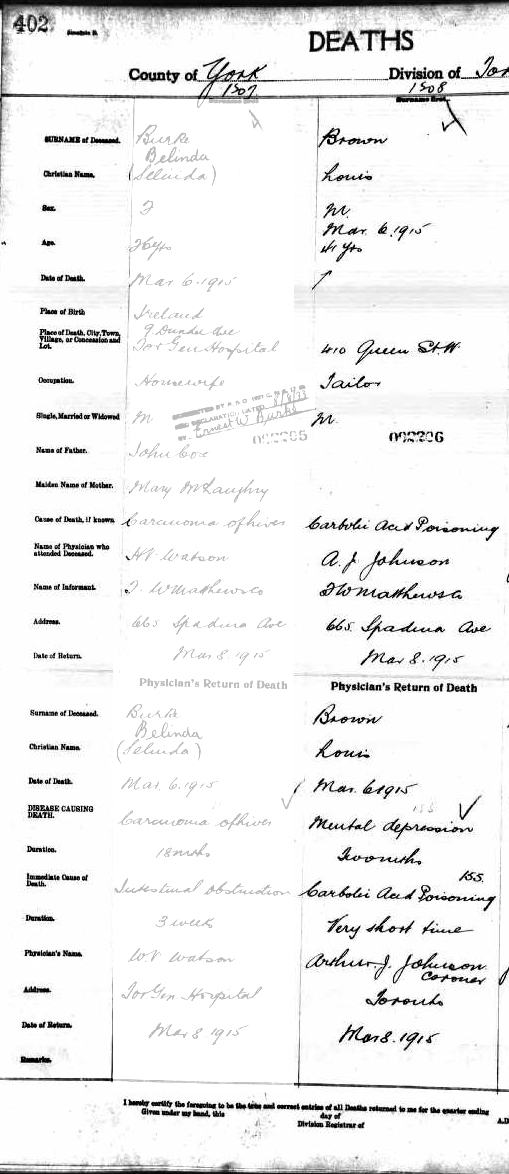 402
DEATHS
County of York
Division of Tor
1507
1508
SURNAME of Deceased. Burke Brown
Belinda
Christian Name. (Selinda) Louis
Sex. F M.
Mar. 6. 1915
Age. 76 yrs 41 yrs
Date of Death. Mar 6. 1915
Place of Birth Ireland
9 Dundas Ave
Place of Death, City, Town, Village, or Concession and Lot. Tor Gen Hospital 410 Queen St. W.
Occupation. Housewife Tailor
Single, Married or Widowed M M.
Ernest W Burke
002205 002206
Name of Father. John Cox
Maiden Name of Mother. Mary McLaughry
Cause of Death, if known Carcinoma of liver Carbolic Acid Poisoning
Name of Physician who attended Deceased. W V Watson A. J. Johnson
Name of Informant. F W Matthews Co F W Matthews Co
Address. 665 Spadina Ave 665. Spadina Ave
Date of Return. Mar 8. 1915 Mar 8. 1915
Physician's Return of Death Physician's Return of Death
Surname of Deceased. Burke Brown
Belinda
Christian Name. (Selinda) Louis
Date of Death. Mar. 6. 1915 Mar. 6 1915
155
DISEASE CAUSING DEATH. Carcinoma of liver Mental depression
Duration. 18 mths Two mths
155.
Immediate Cause of Death. Intestinal Obstruction Carbolic Acid Poisoning
Duration. 3 weeks Very short time
Physician's Name. W V Watson Arthur. J. Johnson.
Coroner
Address. Tor Gen Hospital Toronto
Date of Return. Mar 8 1915 Mar 8. 1915
Remarks.
I hereby certify the foregoing to be the true and correct entries of all Deaths returned to me for the quarter ending
Given under my hand, this day of
Division Registrar of A.D